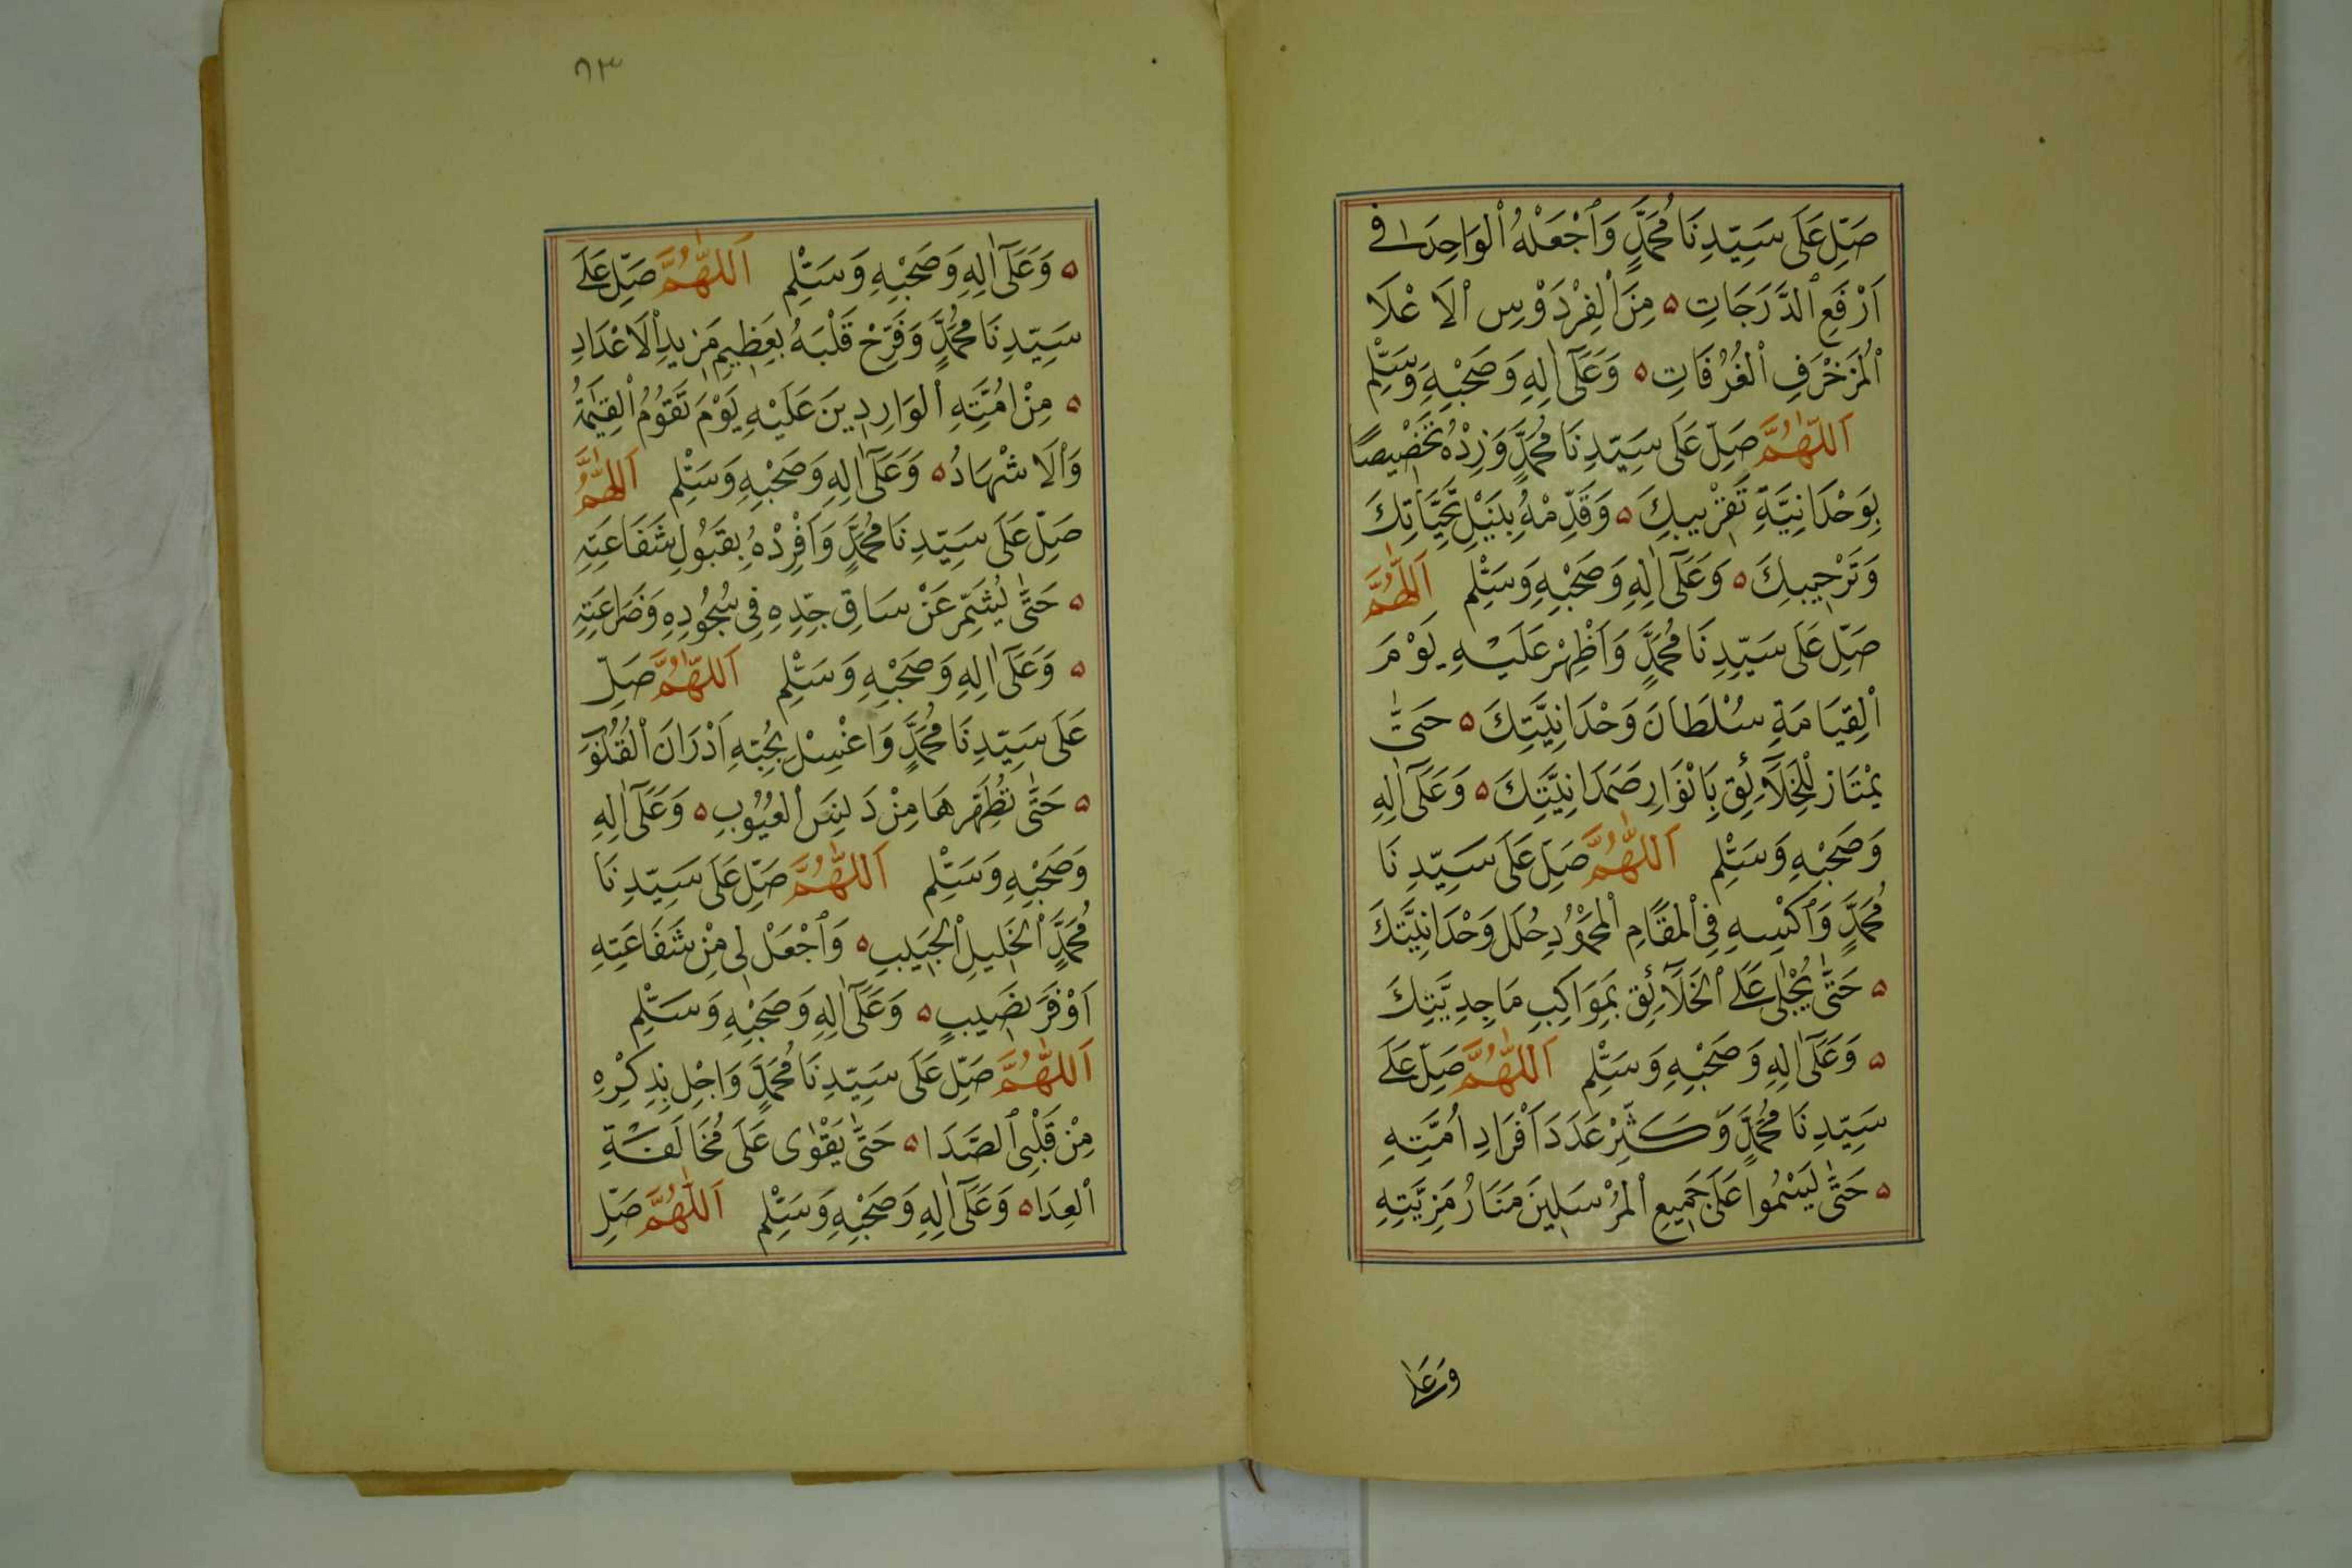 صَلِّ عَلَى سَيِّدِنَا مُحَمَّدٍ وَٱجْعَلْهُ ٱلْوَاحِدَ فِے
اَرْفَعِ ٱلدَّرَجَاتِ ه مِنَ ٱلْفِرْدَوْسِ ٱلْاَعْلَا
ٱلْمُزَخْرَفِ ٱلْغُرُفَاتِ ه وَعَلَىٓ اٰلِهِ وَصَحْبِهِ وَسَلِّمِ
اَللّٰهُمَّ صَلِّ عَلَى سَيِّدِنَا مُحَمَّدٍ وَزِدْهُ تَخْصِيصًا
بِوَحْدَانِيَّةِ تَقْرِيبِكَ ه وَقَدِّمْهُ بِنَيْلِ تَحِيَّاتِكَ
وَتَرْحِيبِكَ ه وَعَلَىٓ اٰلِهِ وَصَحْبِهِ وَسَلِّمِ اَللّٰهُمَّ
صَلِّ عَلَى سَيِّدِنَا مُحَمَّدٍ وَاَظْهِرْ عَلَيْهِ يَوْمَ
ٱلْقِيَامَةِ سُلْطَانَ وَحْدَانِيَّتِكَ ه حَتّٰى
يَمْتَازَ لِلْخَلَآئِقِ بِاَنْوَارِ صَمَدَانِيَّتِكَ ه وَعَلَىٓ اٰلِهِ
وَصَحْبِهِ وَسَلِّمِ اَللّٰهُمَّ صَلِّ عَلَى سَيِّدِنَا
مُحَمَّدٍ وَٱكْسِهِ فِى ٱلْمَقَامِ ٱلْمَحْمُودِ حُلَلَ وَحْدَانِيَّتِكَ
ه حَتّٰى يُجْلٰى عَلَے ٱلْخَلَآئِقِ بِمَوَاكِبِ مَاجِدِيَّتِكَ
ه وَعَلَىٓ اٰلِهِ وَصَحْبِهِ وَسَلِّمِ اَللّٰهُمَّ صَلِّ عَلَے
سَيِّدِنَا مُحَمَّدٍ وَكَثِّرْ عَدَدَ اَفْرَادِ اُمَّتِهِ
ه حَتّٰى يَسْمُوا عَلَى جَمِيعِ ٱلْمُرْسَلِينَ مَنَارُ مَزِيَّتِهِ
وَعَلٰى
٨٣
ه وَعَلَىٓ اٰلِهِ وَصَحْبِهِ وَسَلِّمِ اَللّٰهُمَّ صَلِّ عَلَے
سَيِّدِنَا مُحَمَّدٍ وَفَرِّحْ قَلْبَهُ بِعَظِيمِ مَزِيدِ ٱلْاَعْدَادِ
ه مِنْ اُمَّتِهِ ٱلْوَارِدِينَ عَلَيْهِ يَوْمَ تَقُومُ ٱلْقِيٰمَةُ
وَٱلْاَشْهَادُ ه وَعَلَىٓ اٰلِهِ وَصَحْبِهِ وَسَلِّمِ اَللّٰهُمَّ
صَلِّ عَلَى سَيِّدِنَا مُحَمَّدٍ وَاَفْرِدْهُ بِقَبُولِ شَفَاعَتِهِ
ه حَتّٰى يُشَمِّرَ عَنْ سَاقِ جِدِّهِ فِى سُجُودِهِ وَضَرَاعَتِهِ
ه وَعَلَىٓ اٰلِهِ وَصَحْبِهِ وَسَلِّمِ اَللّٰهُمَّ صَلِّ
عَلَى سَيِّدِنَا مُحَمَّدٍ وَاغْسِلْ بِحُبِّهِ اَدْرَانَ ٱلْقُلُوبِ
ه حَتّٰى تُطَهِّرَهَا مِنْ دَنَسِ ٱلْعُيُوبِ ه وَعَلَىٓ اٰلِهِ
وَصَحْبِهِ وَسَلِّمِ اَللّٰهُمَّ صَلِّ عَلَى سَيِّدِنَا
مُحَمَّدٍ ٱلْخَلِيلِ ٱلْحَبِيبِ ه وَٱجْعَلْ لِى مِنْ شَفَاعَتِهِ
اَوْفَرَ نَصِيبٍ ه وَعَلَىٓ اٰلِهِ وَصَحْبِهِ وَسَلِّمِ
اَللّٰهُمَّ صَلِّ عَلَى سَيِّدِنَا مُحَمَّدٍ وَاجْلِ بِذِكْرِهِ
مِنْ قَلْبِى ٱلصَّدَا ه حَتّٰى يَقْوٰى عَلَى مُخَالَفَةِ
ٱلْعِدَا ه وَعَلَىٓ اٰلِهِ وَصَحْبِهِ وَسَلِّمِ اَللّٰهُمَّ صَلِّ